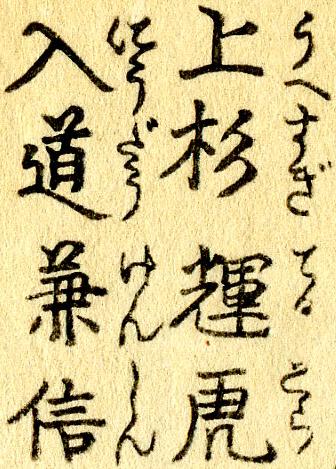 うへすぎ てるとら
上杉輝乕
にうだう けんしん
入道兼信